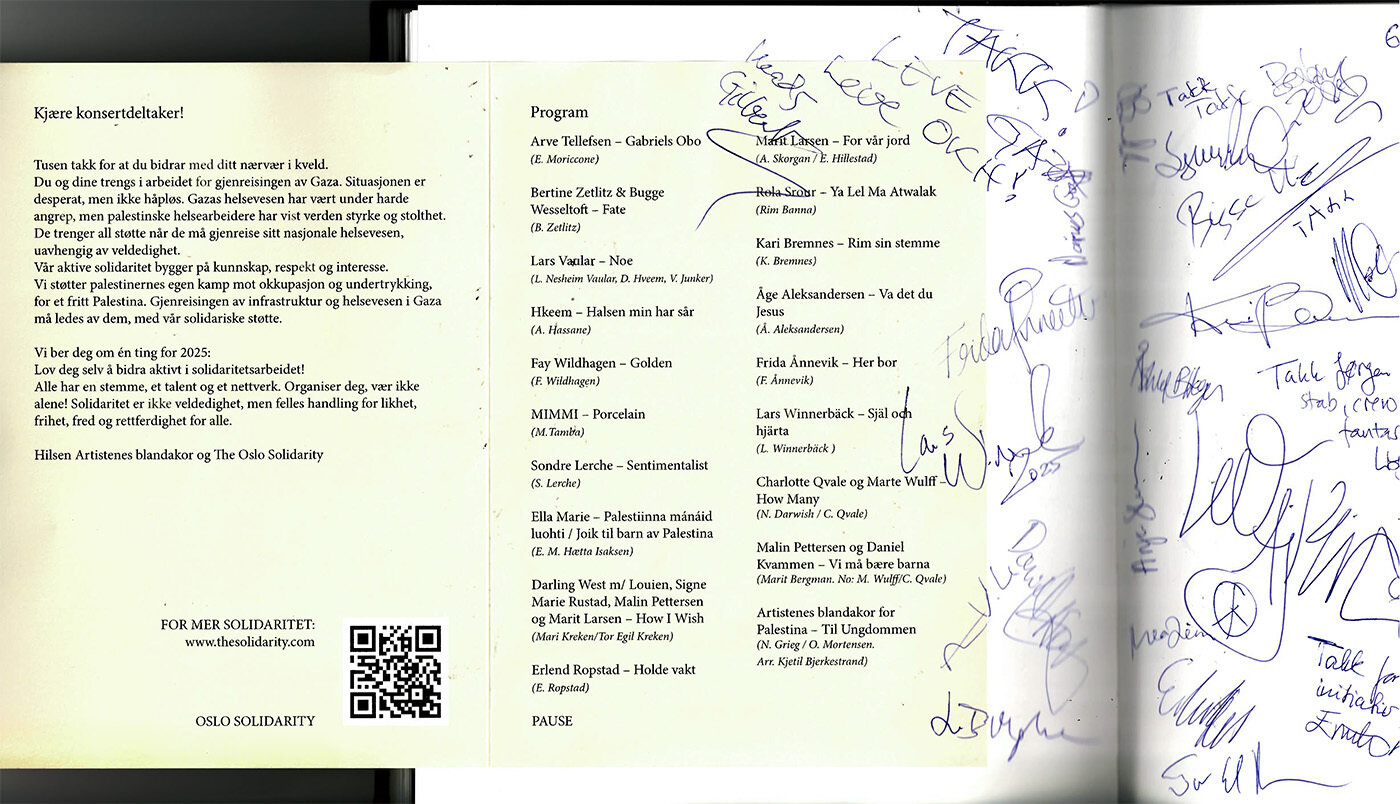 Kjære konsertdeltaker!
Tusen takk for at du bidrar med ditt nærvær i kveld.
Du og dine trengs i arbeidet for gjenreisingen av Gaza. Situasjonen er
desperat, men ikke håpløs. Gazas helsevesen har vært under harde
angrep, men palestinske helsearbeidere har vist verden styrke og stolthet.
De trenger all støtte når de må gjenreise sitt nasjonale helsevesen,
uavhengig av veldedighet.
Vår aktive solidaritet bygger på kunnskap, respekt og interesse.
Vi støtter palestinernes egen kamp mot okkupasjon og undertrykking,
for et fritt Palestina. Gjenreisingen av infrastruktur og helsevesen i Gaza
må ledes av dem, med vår solidariske støtte.
Vi ber deg om én ting for 2025:
Lov deg selv å bidra aktivt i solidaritetsarbeidet!
Alle har en stemme, et talent og et nettverk. Organiser deg, vær ikke
alene! Solidaritet er ikke veldedighet, men felles handling for likhet,
frihet, fred og rettferdighet for alle.
Hilsen Artistenes blandakor og The Oslo Solidarity
FOR MER SOLIDARITET:
www.thesolidarity.com
OSLO SOLIDARITY
Program
Arve Tellefsen – Gabriels Obo
(E. Moriccone)
Bertine Zetlitz & Bugge
Wesseltoft – Fate
(B. Zetlitz)
Lars Vaular – Noe
(L. Nesheim Vaular, D. Hveem, V. Junker)
Hkeem – Halsen min har sår
(A. Hassane)
Fay Wildhagen – Golden
(F. Wildhagen)
MIMMI – Porcelain
(M.Tamba)
Sondre Lerche – Sentimentalist
(S. Lerche)
Ella Marie – Palestiinna mánáid
luohti / Joik til barn av Palestina
(E. M. Hætta Isaksen)
Darling West m/ Louien, Signe
Marie Rustad, Malin Pettersen
og Marit Larsen – How I Wish
(Mari Kreken/Tor Egil Kreken)
Erlend Ropstad – Holde vakt
(E. Ropstad)
PAUSE
Marit Larsen – For vår jord
(A. Skorgan / E. Hillestad)
Rola Srour – Ya Lel Ma Atwalak
(Rim Banna)
Kari Bremnes – Rim sin stemme
(K. Bremnes)
Åge Aleksandersen – Va det du
Jesus
(Å. Aleksandersen)
Frida Ånnevik – Her bor
(F. Ånnevik)
Lars Winnerbäck – Själ och
hjärta
(L. Winnerbäck )
Charlotte Qvale og Marte Wulff –
How Many
(N. Darwish / C. Qvale)
Malin Pettersen og Daniel
Kvammen – Vi må bære barna
(Marit Bergman. No: M. Wulff/C. Qvale)
Artistenes blandakor for
Palestina – Til Ungdommen
(N. Grieg / O. Mortensen.
Arr. Kjetil Bjerkestrand)
Mads
Gilbert
TAKK!
LEVE
Leve
Frida Ånnevik
Lars
2025
Daniel
Takk
TAKK
Takk Jørgen
stab, crew
Takk for
initiativ